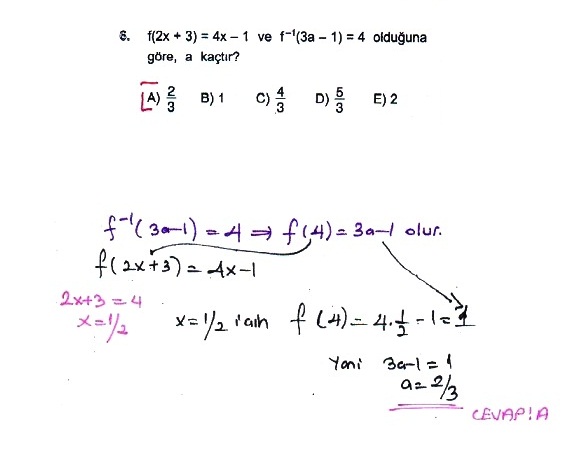 6. f(2x + 3) = 4x – 1 ve f⁻¹(3a – 1) = 4 olduğuna
göre, a kaçtır?
A) 2/3 B) 1 C) 4/3 D) 5/3 E) 2
f⁻¹(3a-1) = 4 ⇒ f(4) = 3a-1 olur.
f(2x+3) = 4x-1
2x+3 = 4
x = 1/2
x = 1/2 için f(4) = 4.1/2 - 1 = 1
Yani 3a-1 = 1
a = 2/3
CEVAP!A